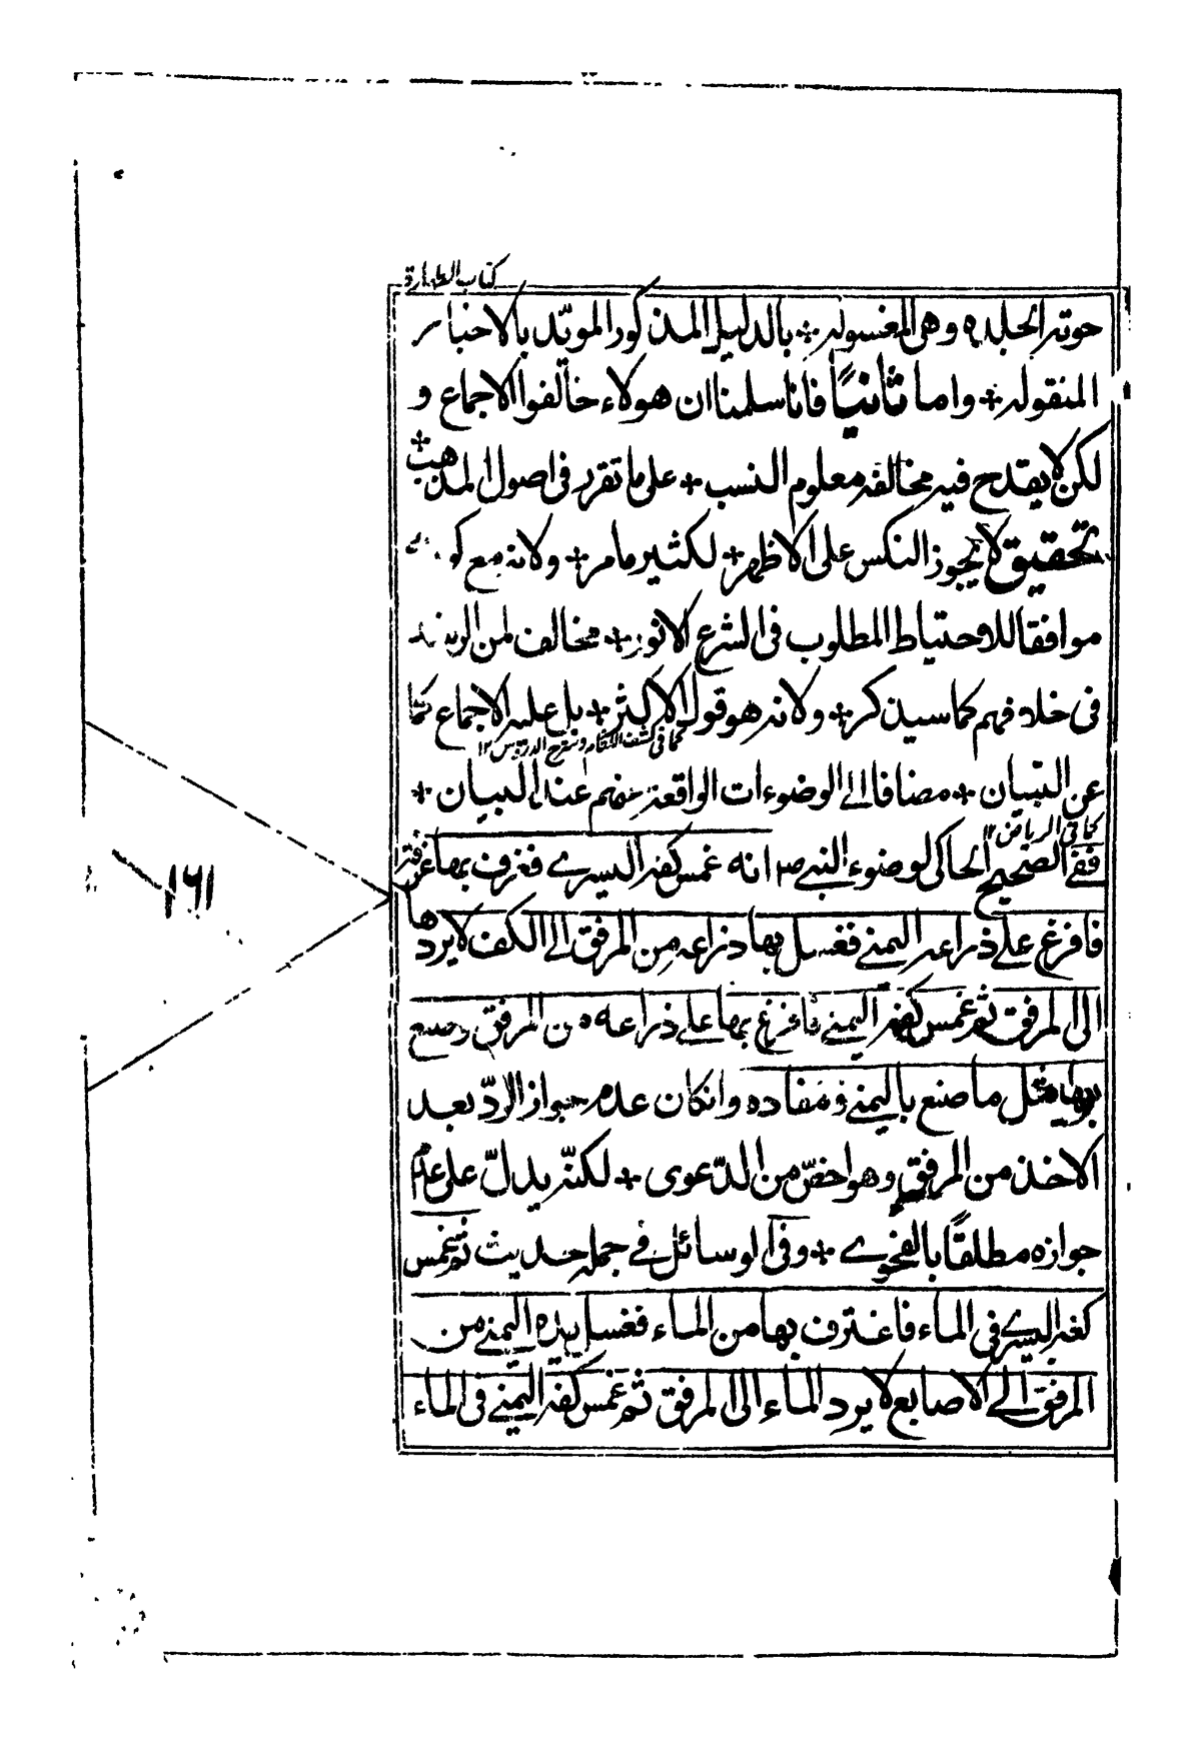 كتاب الطهارة
حوته الجلدة وهى المغسوله + بالدليل المذكور الموّيد بالاخبار
المنقوله + واما ثانيًا فانا سلمنا ان هولاء خالفوا الاجماع و
لكن لا يقدح فيه مخالفة معلوم النسب + على ما تقرر فى اصول المذهب +
تحقيق لا يجوز النكس على الاظهر + لكثير مامر + ولانه مع كونه
موافقا للاحتياط المطلوب فى الشرع الانور + مخالف لمن الرشد
فى خلافهم كما سيذكر + ولانه هو قول الاكثر + بل عليه الاجماع كما
كما فى كشف اللثام وشرح الدروس ١٢
عن التبيان + مضافا الى الوضوءات الواقعة منهم عند البيان +
كما فى الرياض ١٢
ففى الصحيح الحاكى لوضوء النبى ص انه غمس كفه اليسرے فغرف بها غرفة
فافرغ على ذراعه اليمنى فغسل بها ذراعه من المرفق الى الكف لا يردها
الى المرفق ثم غمس كفه اليمنى فافرغ بها على ذراعه من المرفق وصنع
بها مثل ما صنع باليمنى ومفاده وانكان عدم جواز الردّ بعد
الاخذ من المرفق وهو اخصّ من الدّعوى + لكنّه يدلّ على عدم
جوازه مطلقًا بالفحوے + وفى الوسائل فے جملة حديث ثم غمس
كفه اليسرے فى الماء فاغترف بها من الماء فغسل يده اليمنى من
المرفق الى الاصابع لا يرد الماء الى المرفق ثم غمس كفه اليمنى فى الماء
١٦١